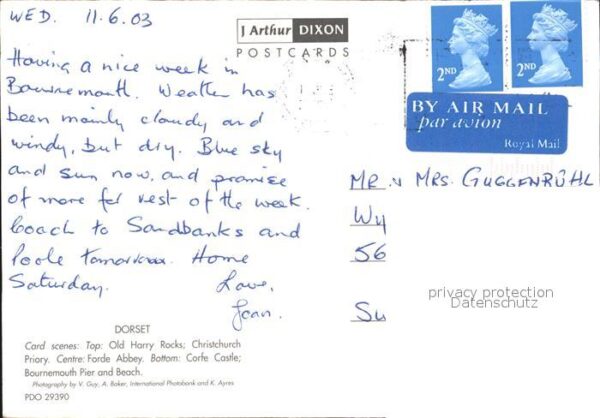 WED. 11.6.03
J Arthur DIXON
POSTCARDS
Having a nice week in
Bournemouth. Weather has
been mainly cloudy and
windy, but dry. Blue sky
and sun now, and promise
of more for rest of the week.
Coach to Sandbanks and
Poole tomorrow. Home
Saturday. Love,
Jean.
2ND
2ND
BY AIR MAIL
par avion
Royal Mail
MR & MRS. GUGGENBÜHL
Wy
56
Su
privacy protection
Datenschutz
DORSET
Card scenes: Top: Old Harry Rocks; Christchurch
Priory. Centre: Forde Abbey. Bottom: Corfe Castle;
Bournemouth Pier and Beach.
Photography by V. Guy, A. Baker, International Photobank and K. Ayres
PDO 29390